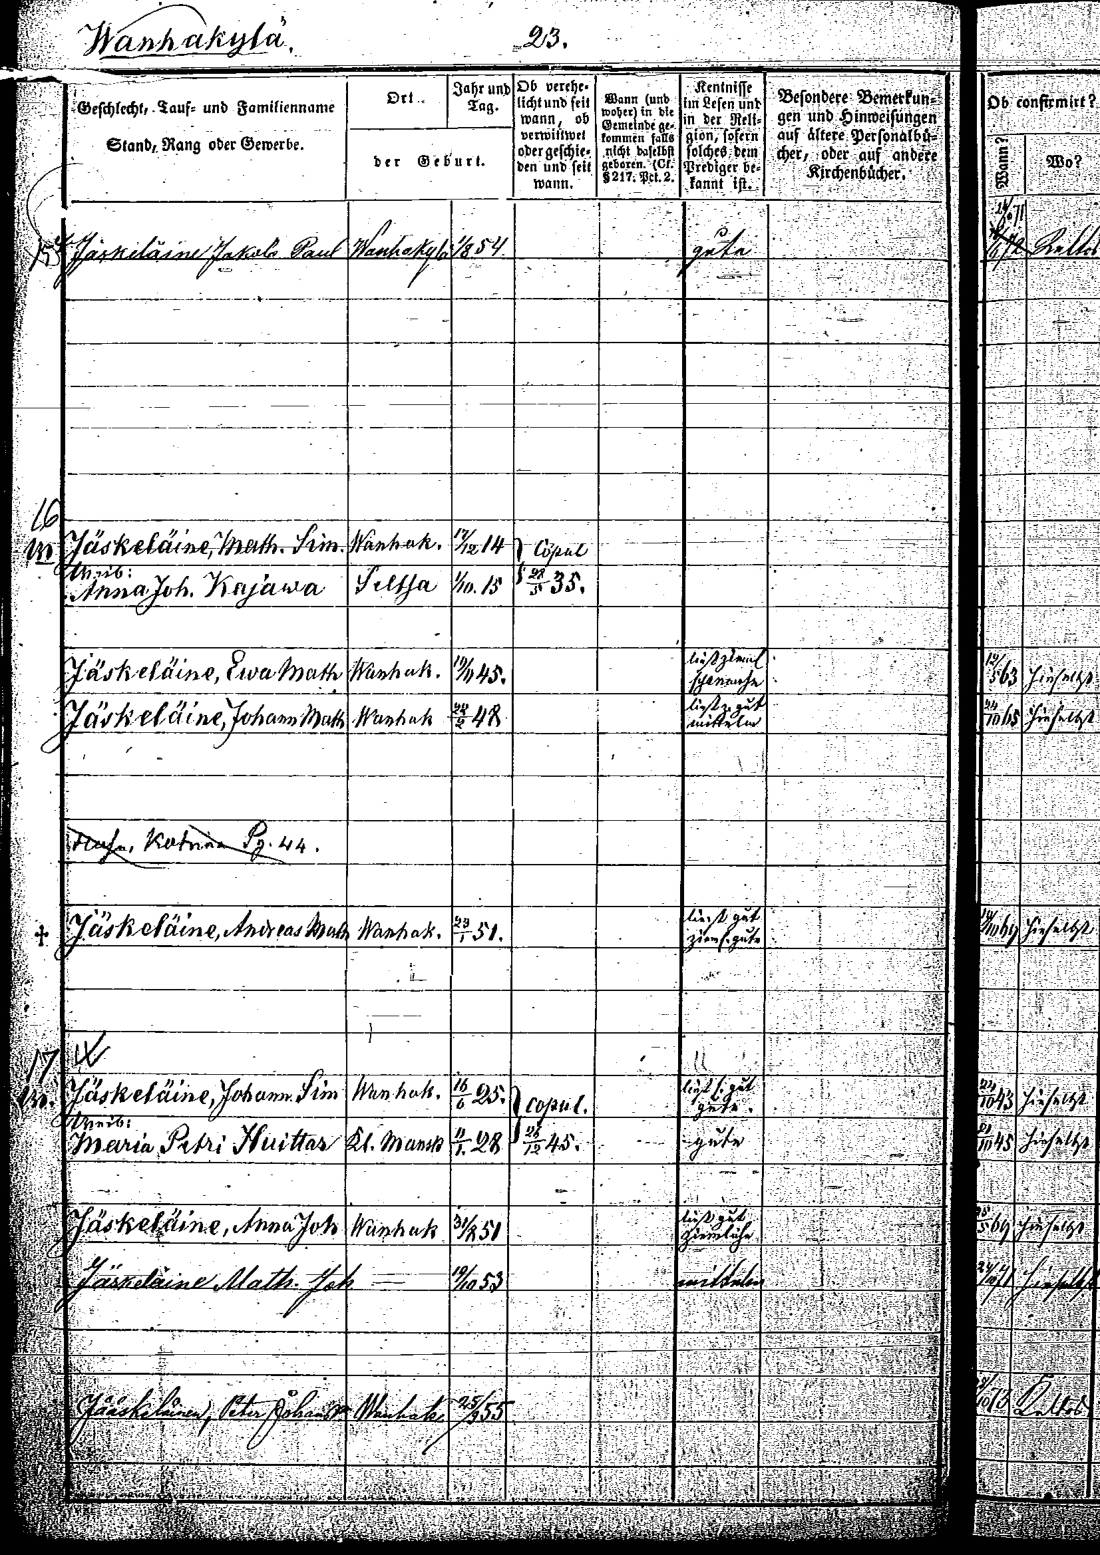 Wanhakylä. 23.
Geschlecht, Tauf- und Familienname
Stand, Rang oder Gewerbe.
Ort
Jahr und Tag.
der Geburt.
Ob verehelicht und seit wann, ob verwittwet oder geschieden und seit wann.
Wann (und woher) in die Gemeinde gekommen falls nicht daselbst geboren. (Cf. § 217. Pct. 2.
Kentnisse im Lesen und in der Religion, sofern solches dem Prediger bekannt ist.
Besondere Bemerkungen und Hinweisungen auf ältere Personalbücher, oder auf andere Kirchenbücher.
Ob confirmirt?
Wann? Wo?
Jäskeläine Jakob Paul Wanhakylä 1854 gute Keltos
16
Jäskeläine, Math. Sim. Wanhak. 17/12 14 Copul
Weib:
Anna Joh. Kajawa Seltsa 1/10. 15 28/5 35.
Jäskeläine, Ewa Math Wanhak. 19/11 45. 19/5 63 hieselbst
Jäskeläine, Johann Math Wanhak 28/2 48 ließt gut mittelm 24/10 65 hieselbst
Pg. 44.
† Jäskeläine, Andreas Math Wanhak. 23/1 51. ließt gut 69 hieselbst
17
Jäskeläine, Johann Sim Wanhak. 16/6 25. copul. gute. 24/10 43 hieselbst
Weib:
Maria Petri Huittar Kl. Mansk 11/1. 28 26/12 45. gute 21/10 45 hieselbst
Jäskeläine, Anna Joh Wanhak 51 ließt gut 69 hieselbst
Jäskeläine Math. Joh — 19/10 53 mittelm 24/10 71 hieselbst
Jääskeläinen, Peter Johann Wanhak 55 Keltos